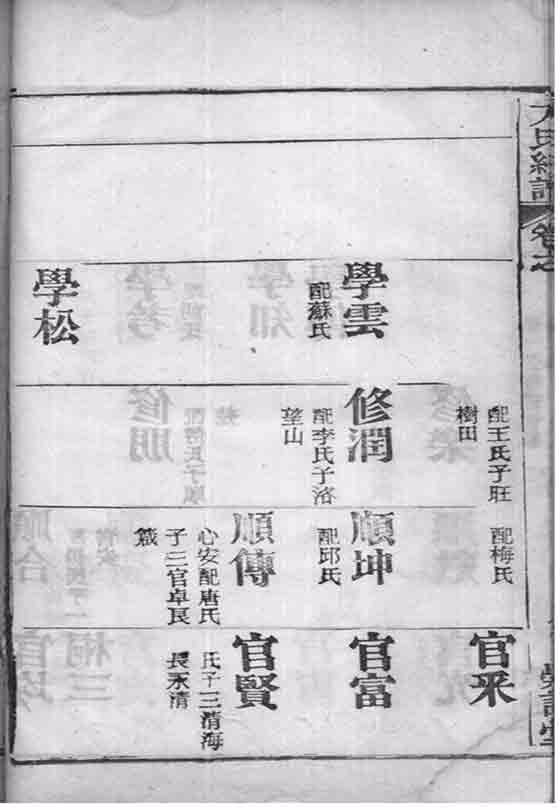 氏
卷之
學雲
配蘇氏
學松
配王氏子旺
樹田
修潤
配李氏子洛
望山
配梅氏
順坤
配邱氏
順傳
心安配唐氏
子三官卓良
箴
官采
官富
官賢
氏子三清海
長永清